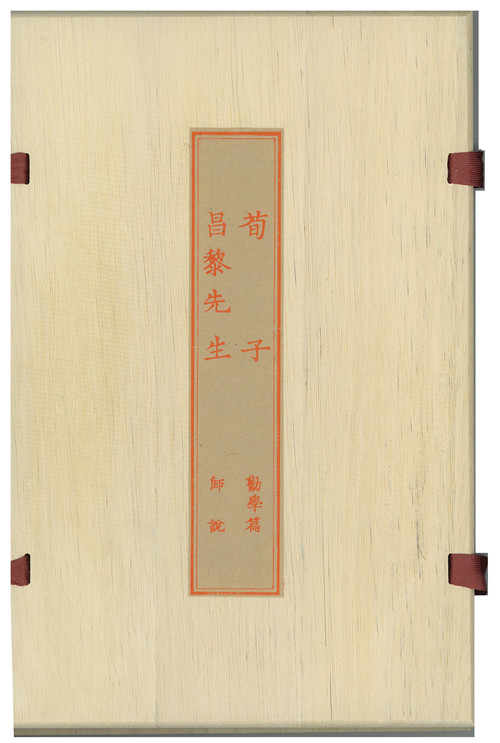 荀子 勸學篇
昌黎先生 師說